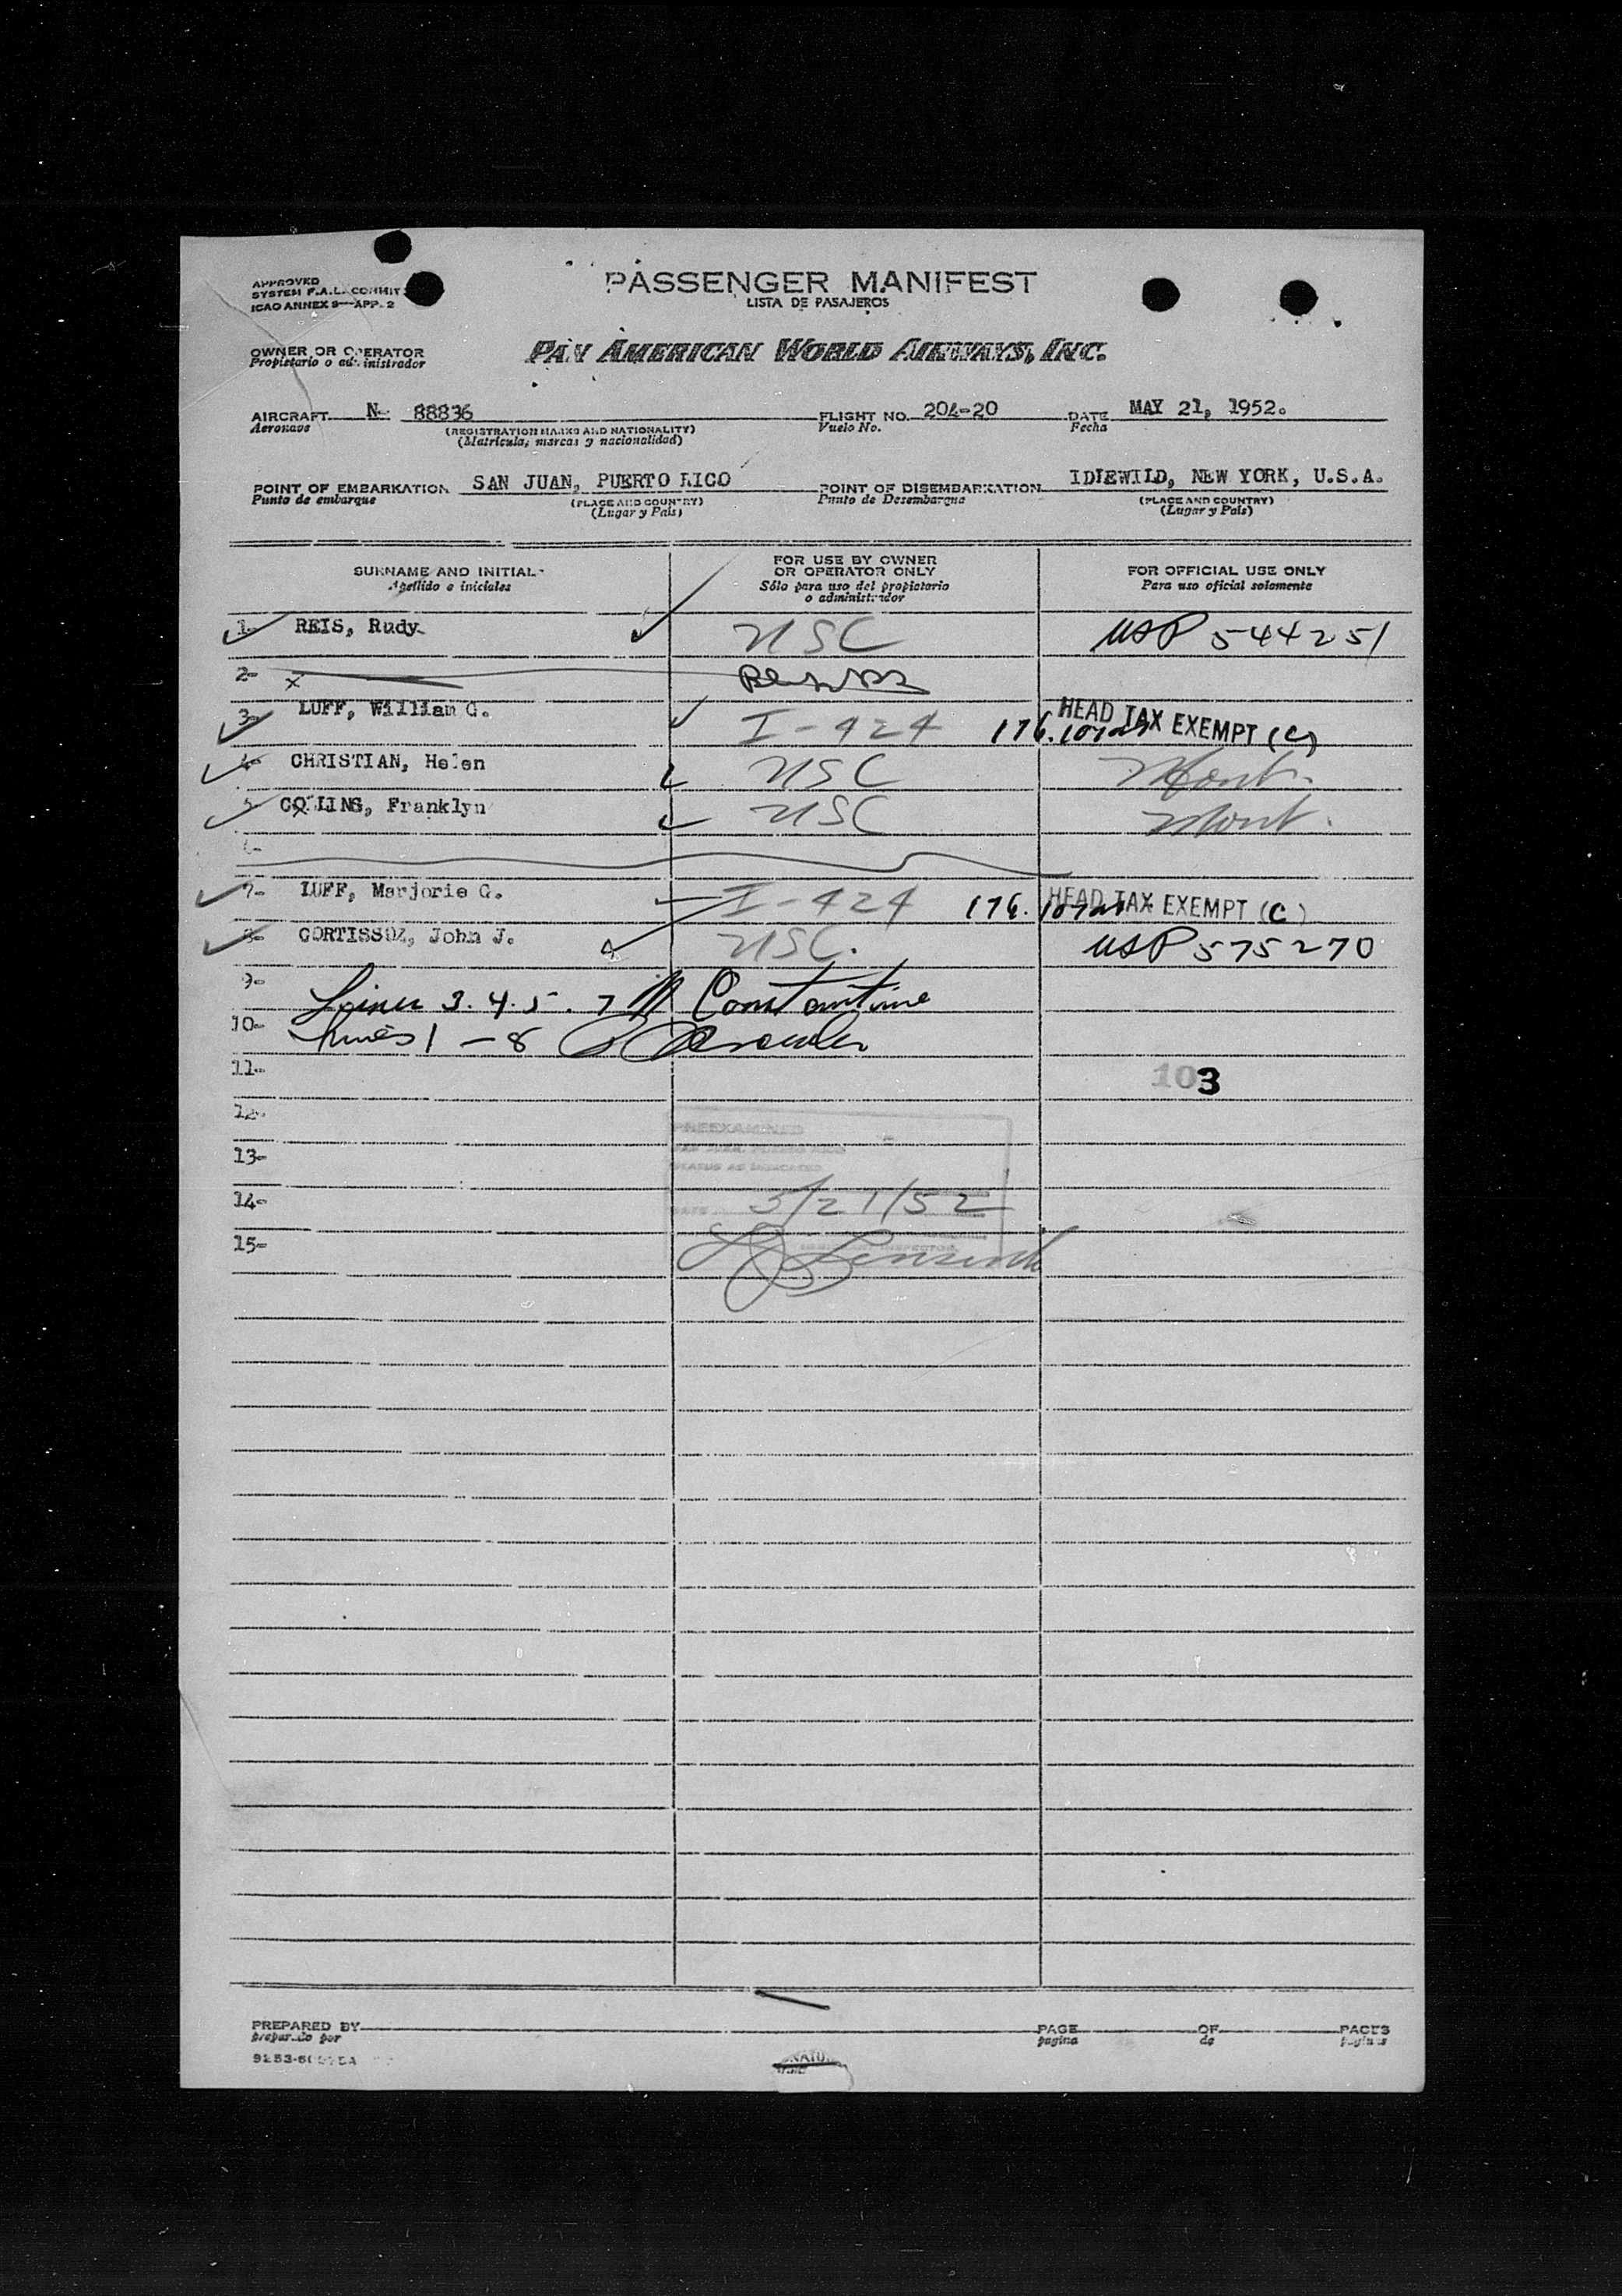 APPROVED
SYSTEM F.A.L. COMMIT
ICAO ANNEX 9—APP. 2
PASSENGER MANIFEST
LISTA DE PASAJEROS
OWNER OR OPERATOR
Propietario o administrador
PAN AMERICAN WORLD AIRWAYS, INC.
AIRCRAFT N- 88836 FLIGHT NO. 204-20 DATE MAY 21, 1952.
Aeronave (REGISTRATION MARKS AND NATIONALITY) Vuelo No. Fecha
(Matricula, marcas y nacionalidad)
POINT OF EMBARKATION SAN JUAN, PUERTO RICO POINT OF DISEMBARKATION IDIEWILD, NEW YORK, U.S.A.
Punto de embarque (PLACE AND COUNTRY) Punto de Desembarque (PLACE AND COUNTRY)
(Lugar y País) (Lugar y País)
SURNAME AND INITIAL FOR USE BY OWNER OR OPERATOR ONLY FOR OFFICIAL USE ONLY
Apellido e iniciales Sólo para uso del propietario o administrador Para uso oficial solamente
1- REIS, Rudy USC USP 544251
2- x
3- LUFF, William G. I-424 176. HEAD TAX EXEMPT (C)
4- CHRISTIAN, Helen USC Mont.
5- COLLINS, Franklyn USC Mont.
6-
7- LUFF, Marjorie G. I-424 176. HEAD TAX EXEMPT (C)
8- CORTISSOZ, John J. USC. USP 575270
9- Lines 3. 4. 5. 7 Constantine
10- Lines 1 - 8
11- 103
12-
PREEXAMINED
SAN JUAN, PUERTO RICO
13- STATUS AS INDICATED
14- DATE 5/21/52
15- INSPECTOR
PREPARED BY PAGE OF PAGES
preparado por pagina de paginas